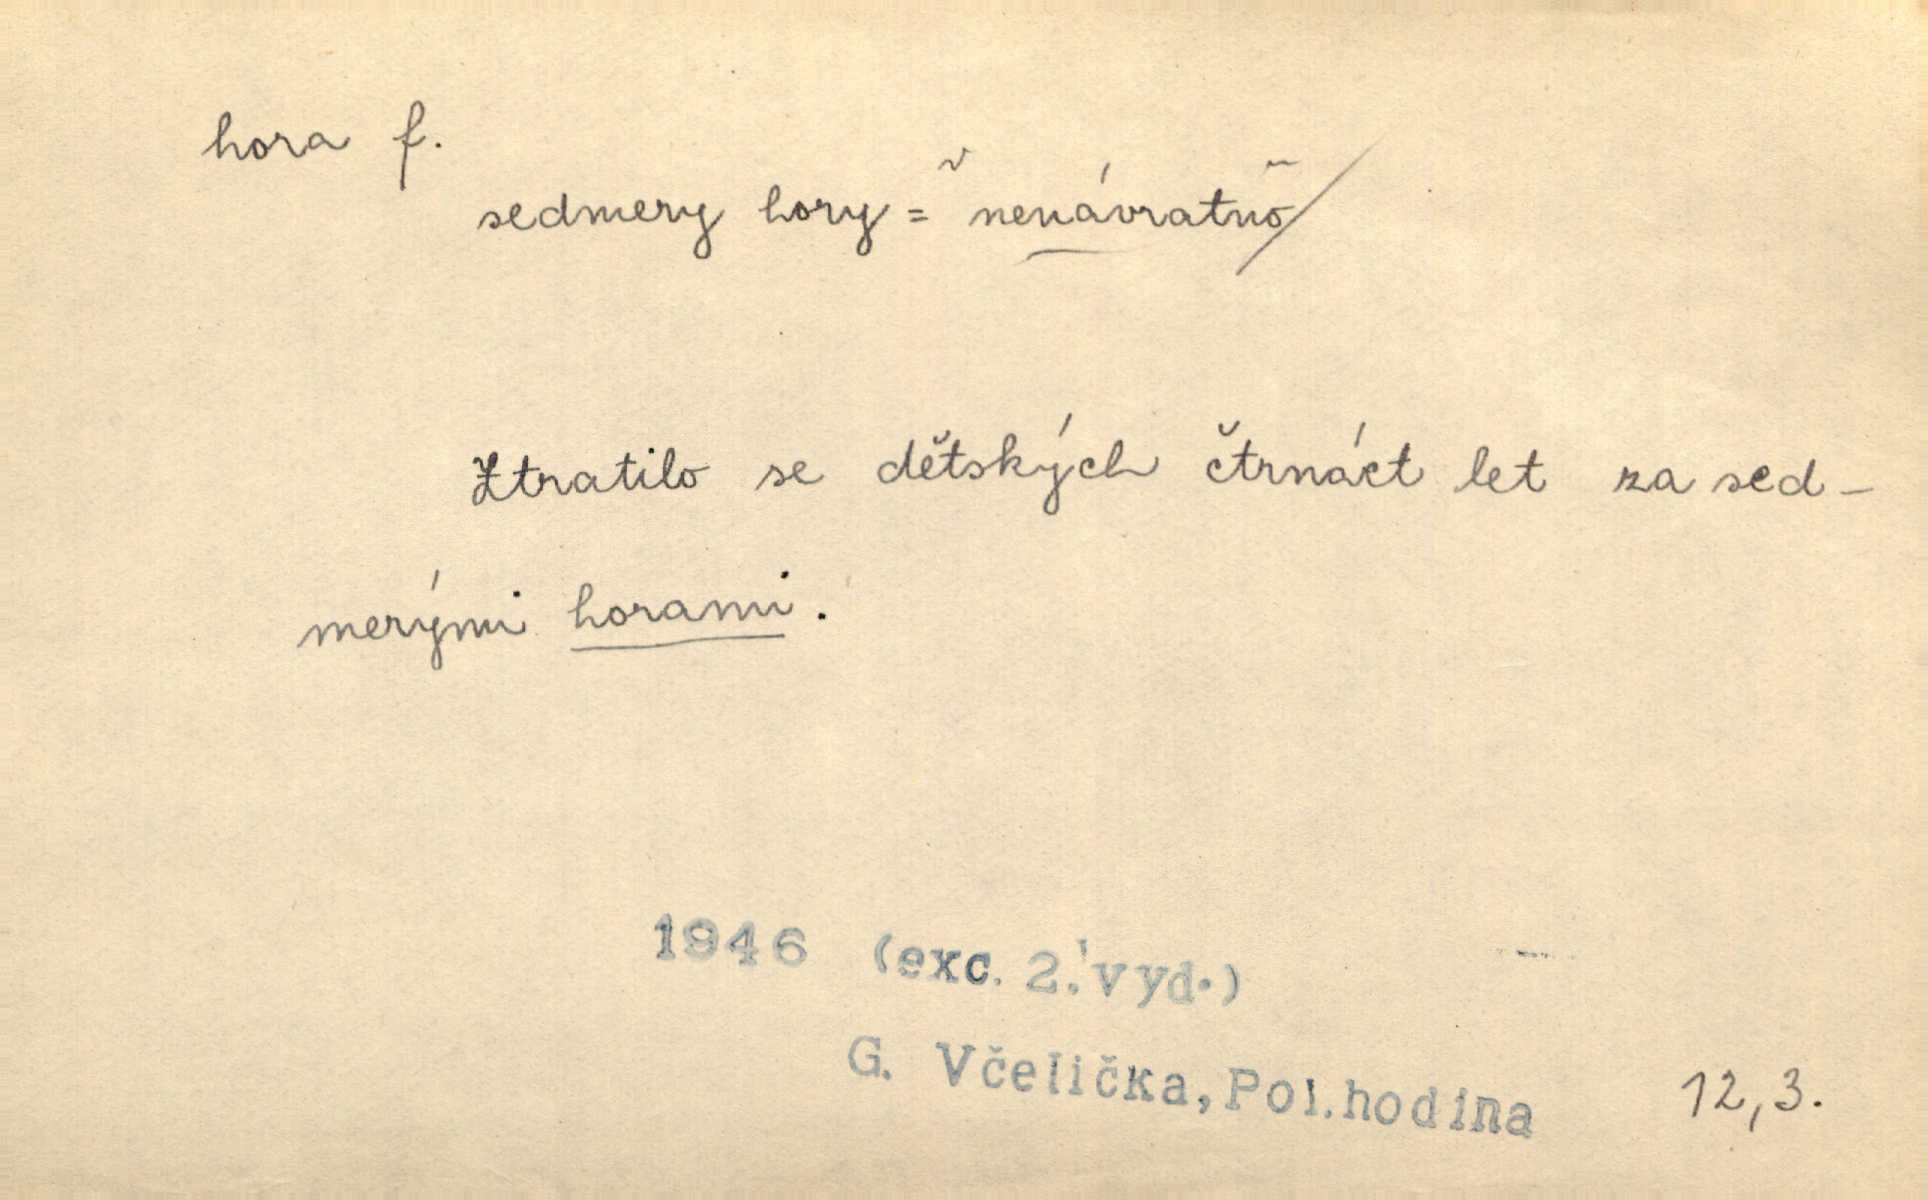 hora f.
sedmery hory = nenávratno
Ztratilo se dětských čtrnáct let za sed-
merými horami.
1946 (exc. 2. vyd.)
G. Včelička, Pol. hodina 12,3.